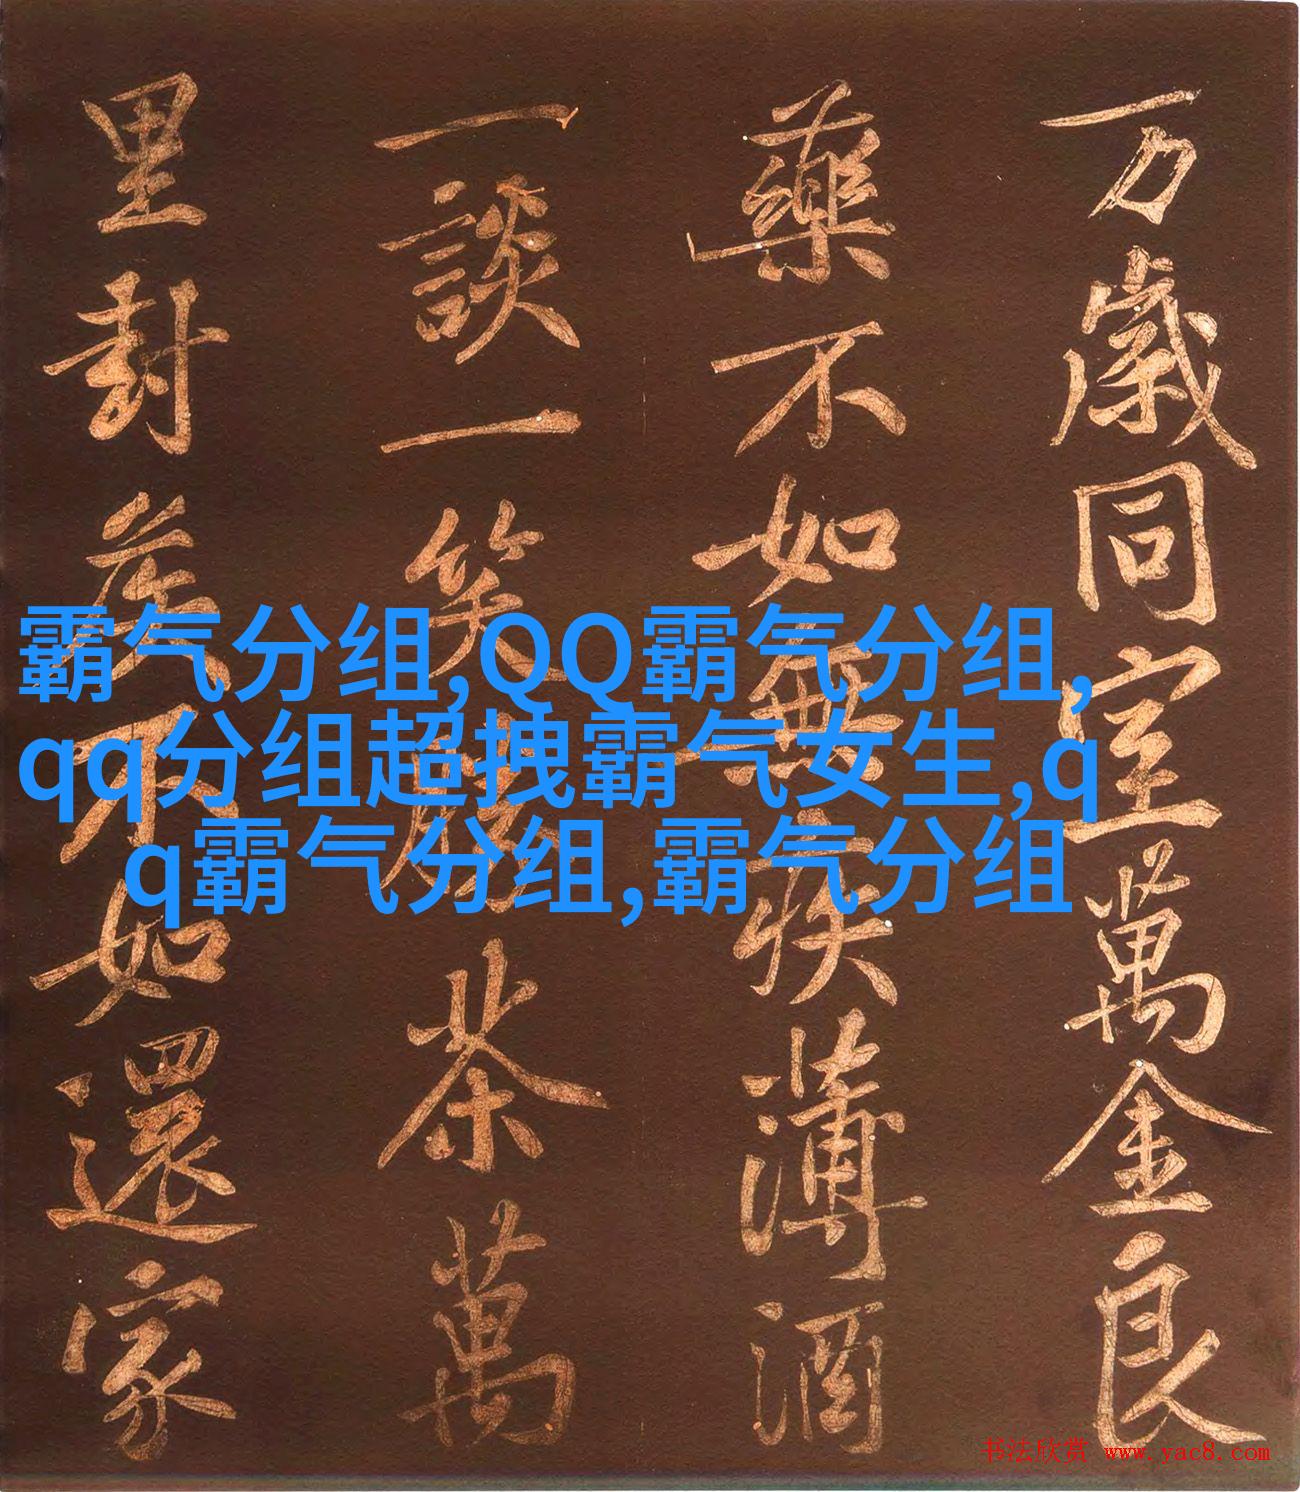 万歲同室萬金良
藥不如無疾薄酒
一談一笑勝茶萬
里封矦不如還家
霸气分组,QQ霸气分组,
qq分组超拽霸气女生,q
q霸气分组,霸气分组
书法欣赏 www.yac8.com